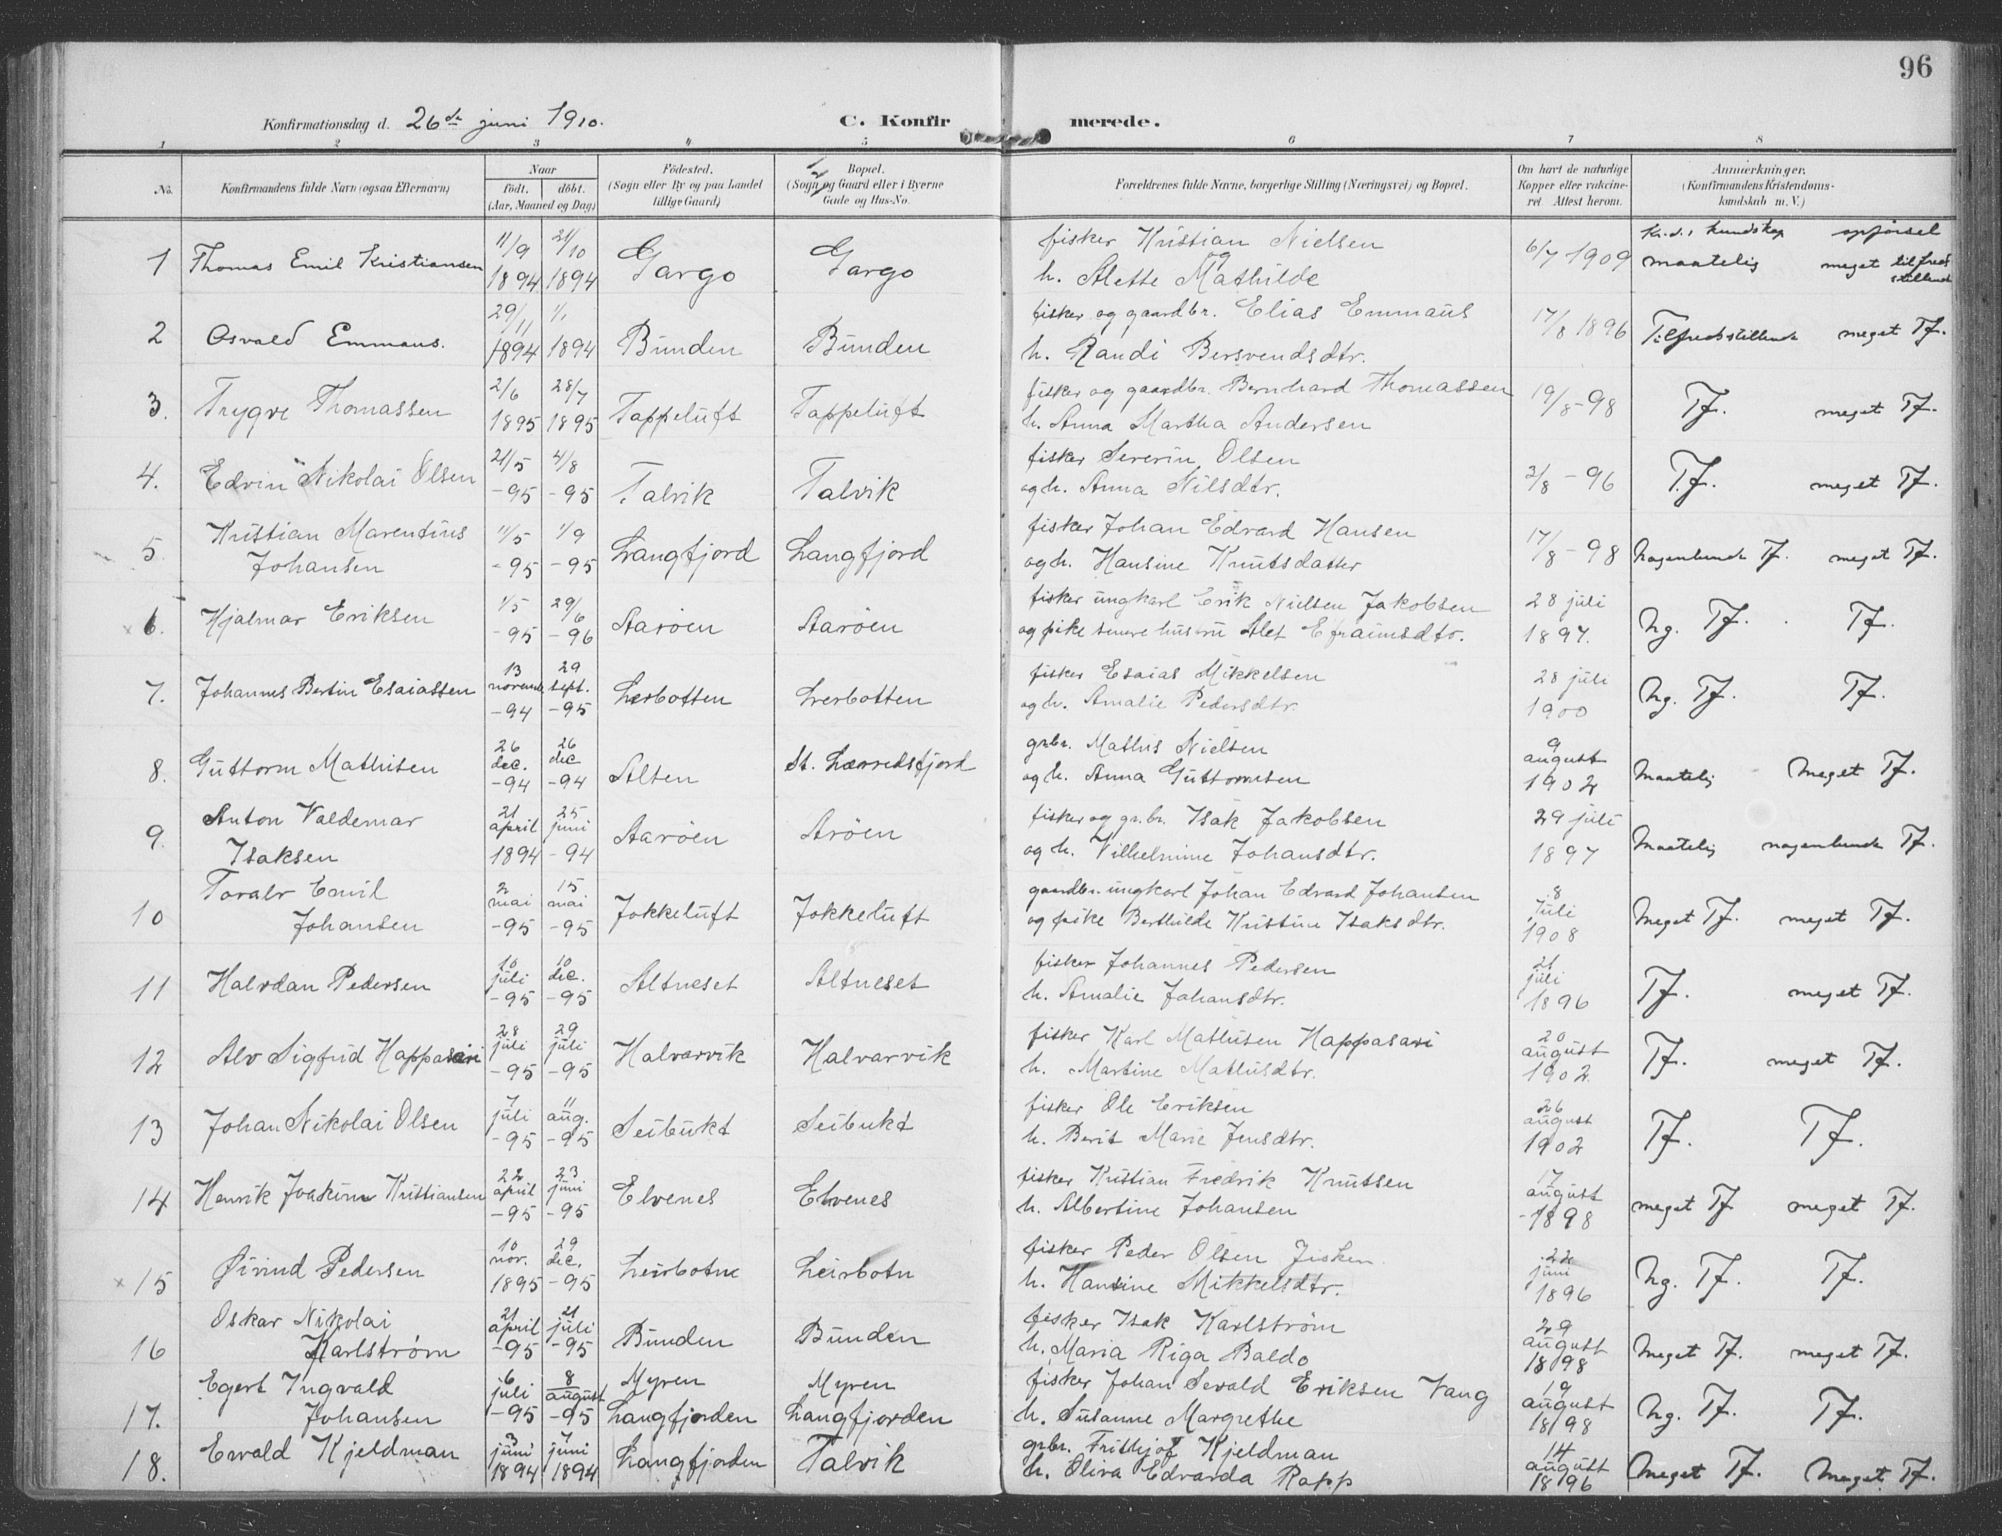 96
Konfirmationsdag d. 26de juni 1910. C. Konfir merede.
1 2 3 4 5 6 7 8
No. Konfirmandens fulde Navn (ogsaa Efternavn) Naar født. døbt. (Aar, Maaned og Dag) Fødested. (Sogn eller By og paa Landet tillige Gaard) Bopæl. (Sogn og Gaard eller i Byerne Gade og Hus-No. Forældrenes fulde Navne, borgerlige Stilling (Næringsvei) og Bopæl. Om havt de naturlige Kopper eller vakcineret Attest herom. Anmærkninger. (Konfirmandens Kristendomskundskab m. V.)
Kr.d.s kundskap opførsel
1 Thomas Emil Kristiansen 11/9 1894 21/10 1894 Gargo Gargo fisker Kristian Nielsen
og h. Alette Mathilde 6/7 1909 maatelig meget tilfredsstillende
2 Osvald Emmaus. 29/11 1894 1/1 1894 Bunden Bunden fisker og gaardbr. Elias Emmaus
h. Randi Bersvendsdtr. 17/8 1896 Tilfredsstillende meget Tf.
3. Trygve Thomassen 2/6 1895 28/7 1895 Tappeluft Tappeluft fisker og gaardbr. Bernhard Thomassen
h. Anna Martha Andersen 19/8-98 Tf. meget Tf.
4. Edvin Nikolai Olsen 21/5 -95 4/8 -95 Talvik Talvik fisker Severin Olsen
og h. Anna Nilsdtr. 3/8 -96 T.f. meget Tf.
5. Kristian Marentius
Johansen 11/5 -95 1/9 -95 Langfjord Langfjord fisker Johan Edvard Hansen
og h. Hansine Knutsdatter 17/8 -98 nogenlunde Tf. meget Tf.
x 6. Hjalmar Eriksen 1/5 -95 29/6 -96 Aarøen Aarøen fisker ungkarl Erik Nielsen Jakobsen
og pike senere hustru Alet Efraimsdtr. 28 juli 1897. Ng. Tf. Tf.
7. Johannes Bertin Esaiassen 13 novemb -94 29 sept. -95 Lerbotten Lverbotten fisker Esaias Mikkelsen
og h. Amalie Pedersdtr. 28 juli 1900 Ng. Tf. Tf.
8. Guttorm Mathisen 26 dec. -94 26 dec -94 Alten St. Lærredsfjord grbr. Mathis Nielsen
og h. Anna Guttormsen 9 august 1902 Maatelig Meget Tf.
9. Anton Valdemar
Isaksen 21 april 1894 25 juni -94 Aarøen Arøen fisker og gr.br. Isak Jakobsen
og h. Vilhelmine Johansdtr. 29 juli 1897 Maatelig nogenlunde Tf.
10 Toralv Emil
Johansen 2 mai -95 15 mai -95 Jokkeluft Jokkeluft gaardbr. ungkarl Johan Edvard Johansen
og pike Berthilde Kristine Isaksdtr. 8 Juli 1908 Meget Tf. meget Tf.
11 Halvdan Pedersen 10 juli -95 10 dec. -95 Altneset Altneset fisker Johannes Pedersen
h. Amalie Johansdtr. 21 juli 1896 Tf. meget Tf.
12 Alv Sigfrid Happasari 28 juli -95 29 juli -95 Halvarvik Halvarvik fisker Karl Mathisen Happasari
h. Martine Mathisdtr. 20 august 1902. Tf. meget Tf.
13 Johan Nikolai Olsen 7 juli -95 11 aug. -95 Seibukt Seibukt fisker Ole Eriksen
h. Berit Marie Jensdtr. 26 august 1902 Tf. Tf.
14 Henrik Joakim Kristiansen 22 april -95 23 juni -95 Elvenes Elvenes fisker Kristian Fredrik Knutsen
h. Albertine Johansen 17 august -1898 meget Tf meget Tf.
x 15 Øivind Pedersen 10 nov. 1895 29 dec. -95 Leirbotne Leirbotn fisker Peder Olsen Fisker
h. Hansine Mikkelsdtr. 22 juni 1896 Ng. Tf. Tf.
16 Oskar Nikolai
Karlstrøm 21 april -95 21 juli -95 Bunden Bunden fisker Isak Karlstrøm
h. Maria Riga Baldo 29 august 1898 Meget Tf. meget Tf.
17. Egert Ingvald
Johansen 6 juli -95 8 august -95 Myren Langfjorden Myren Langfjorden fisker Johan Sevald Eriksen Vang
h. Susanne Margrethe 19 august 1898 Ng. Tf. Tf.
18. Ewald Kjeldman 3 juni 1894 7 juni 1894 Langfjorden Talvik grbr. Frithjof Kjeldman
h. Oliva Edvarda Rapp 14 august 1896 Meget Tf. Meget Tf.